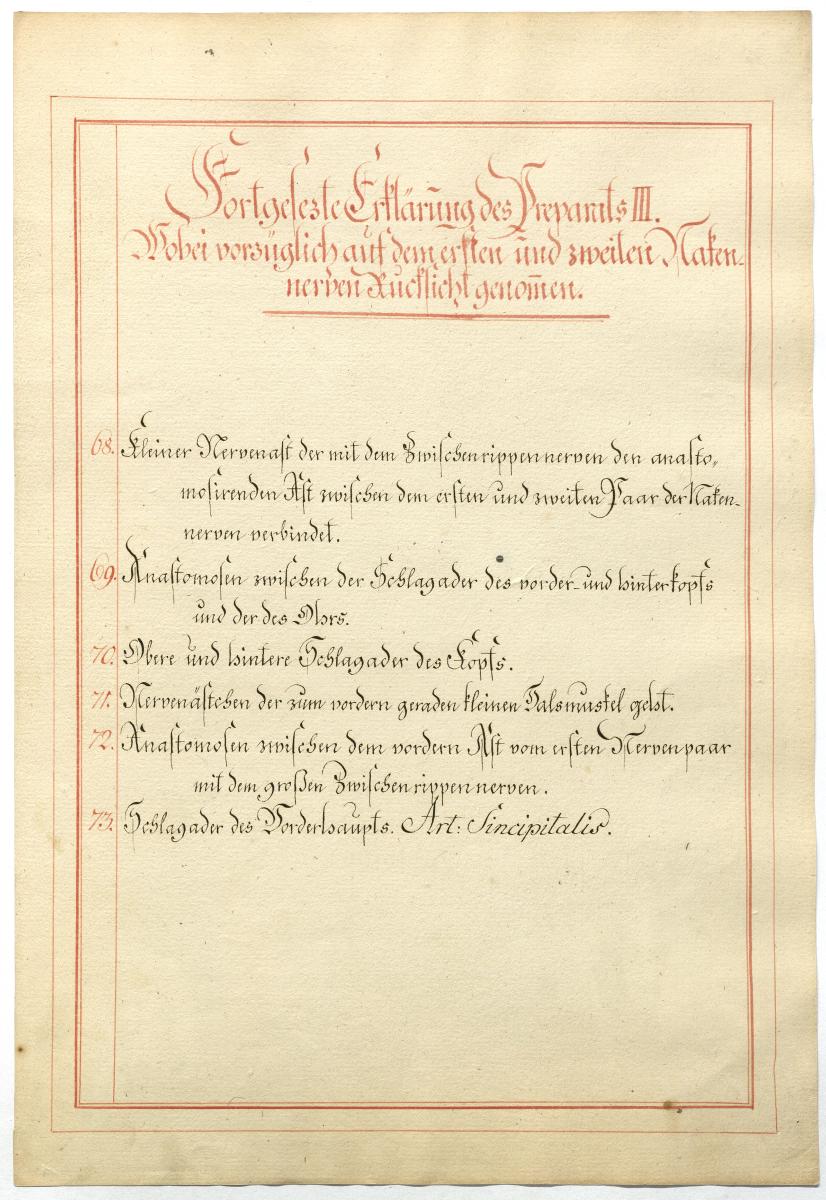 Fortgesezte Erklärung des Preparats III.
Wobei vorzüglich auf dem ersten und zweiten Naken-
nerven Rucksicht genom̄en.
68. Kleiner Nervenast der mit dem Zwischenrippennerven den anasto„
mosirenden Ast zwischen dem ersten und zweiten Paar der Naken-
nerven verbindet.
69. Anastomosen zwischen der Schlagader des vorder- und hinterkopfs
und der des Ohrs.
70. Obere und hintere Schlagader des Kopfs.
71. Nervenästchen der zum vordern geraden kleinen Halsmuskel geht.
72. Anastomosen zwischen dem vordern Ast vom ersten Nervenpaar
mit dem großen Zwischenrippennerven.
73. Schlagader des Vorderhaupts. Art: Sincipitalis.